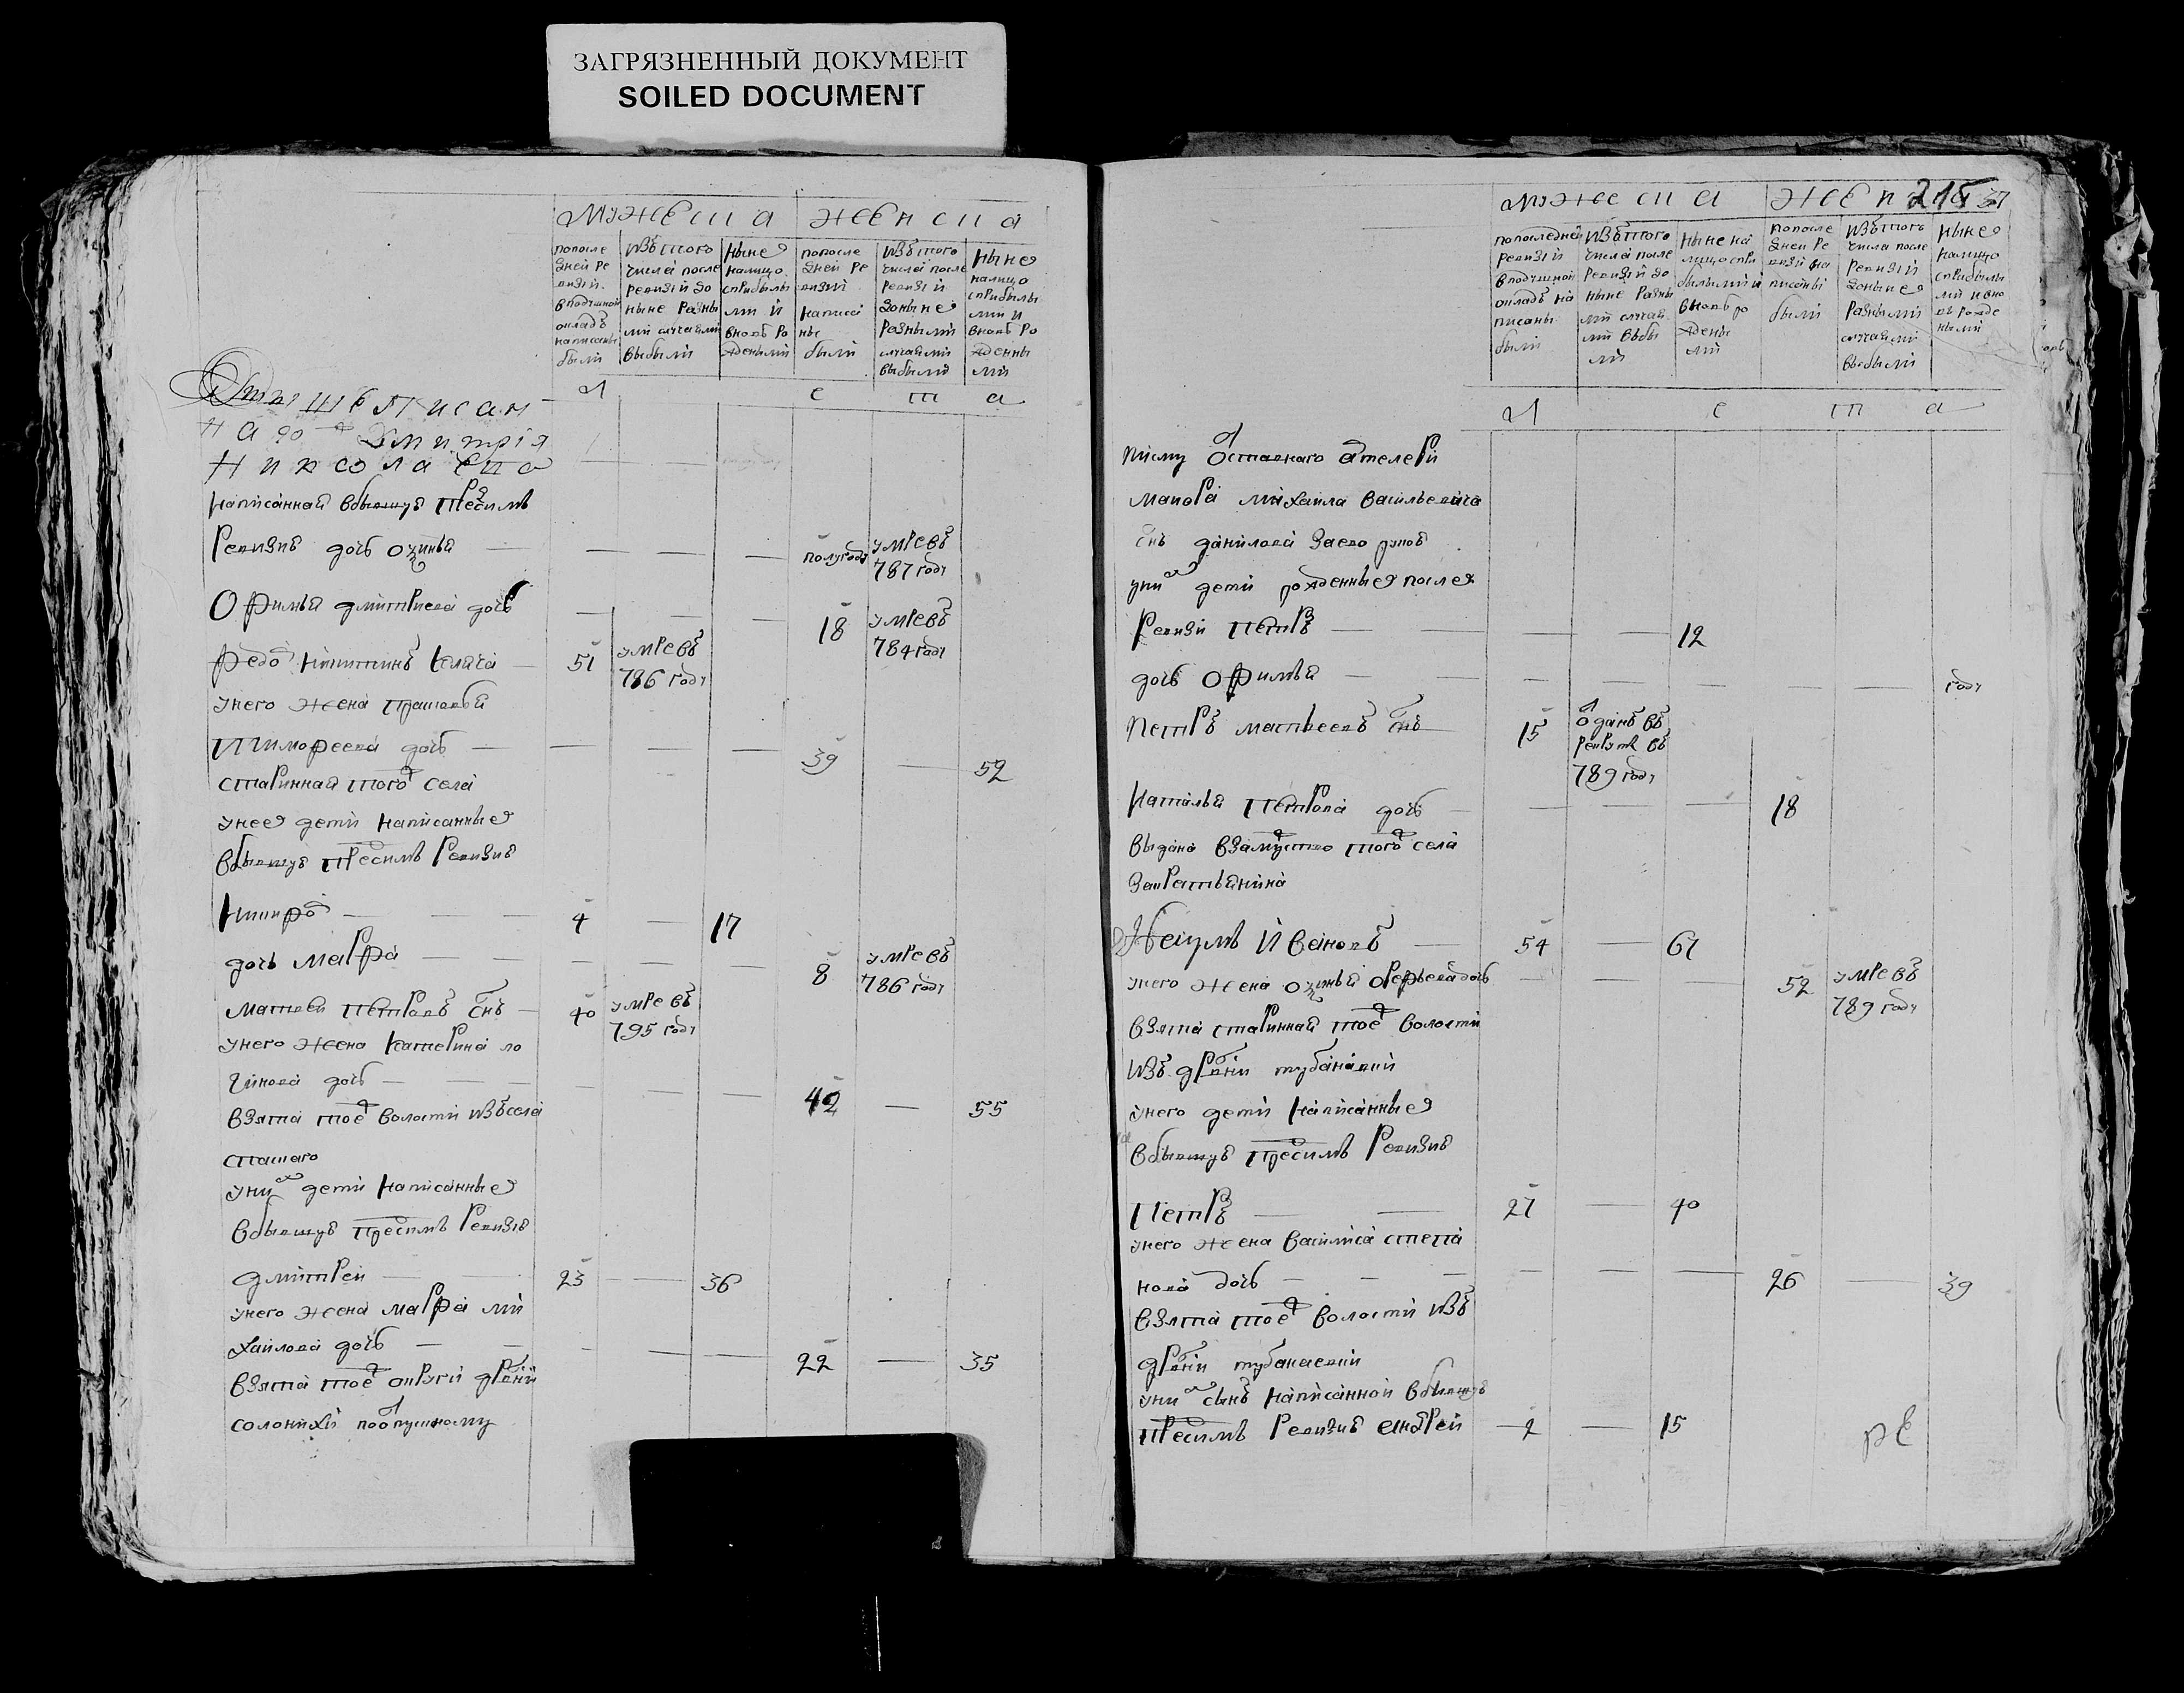 ЗАГРЯЗНЕННЫЙ ДОКУМЕНТ
SOILED DOCUMENT
мужеска женска
попосле дней ре визïи вподушной окладъ написаны были
изътого числа после ревизïи до ныне разны ми случаями выбыли
ныне налицо сприбылы ми и вновь ро жденными
попосле дней ре визïи написа ны были
изътого числа после ревизïи доныне разными случаями выбыли
ныне налицо сприбылы ми и вновь ро жденны ми
л е т а
Николаева
написанная вбывшую пресимъ
ревизию дочь
полугоду умре въ 787 году
Офимья дмитриева дочь 18 умре въ 784 году
федо никитинъ 51 умре въ 786 году
унего жена прасковья
тимофеева дочь 39 52
старинная того села
унее дети написанные
вбывшую пресимъ ревизию
никифо 4 17
дочь мавра 8 умре въ 786 году
матвеи петровъ снъ 40 умре въ 795 году
унего жена катерина ло
гинова дочь 42 55
взята тое волости изъсела
уних дети написанные
вбывшую пресимъ ревизию
дмитреи 23 36
унего жена мавра ми
хаилова дочь 22 35
взята тое округи дрвни
солонихи поопускному
215 37
мужеска женска
попоследней ревизïи вподушной окладъ на писаны были
изътого числа после ревизïи до ныне разны ми случая ми выбы ли
ныне на лицо спри былыми и вновь ро ждены ми
попосле дней ре визïи на писаны были
изътого числа после ревизïи доныне разными случаями выбыли
ныне налицо сприбылы ми и вно вь рожде ными
л е т а
писму оставнаго
маиора михаила васильевича
сна данилова
уних дети рожденные после
ревизи петръ 12
дочь офимья году
петръ матвеевъ снъ 15 оданъ въ рекруты въ 789 году
наталья петрова дочь 18
выдана взамуство того села
закрестьянина
Наумъ Ивановъ 54 67
унего жена дочь 52 умре въ 789 году
взята старинная тое волости
изъ дрвни тубанаевки
унего дети написанные
вбывшую пресимъ ревизию
петръ 27 40
унего жена василиса степа
нова дочь 26 39
взята тое волости изъ
дрвни тубанаевки
уних сынъ написанной вбывшую
пресимъ ревизию андреи 2 15